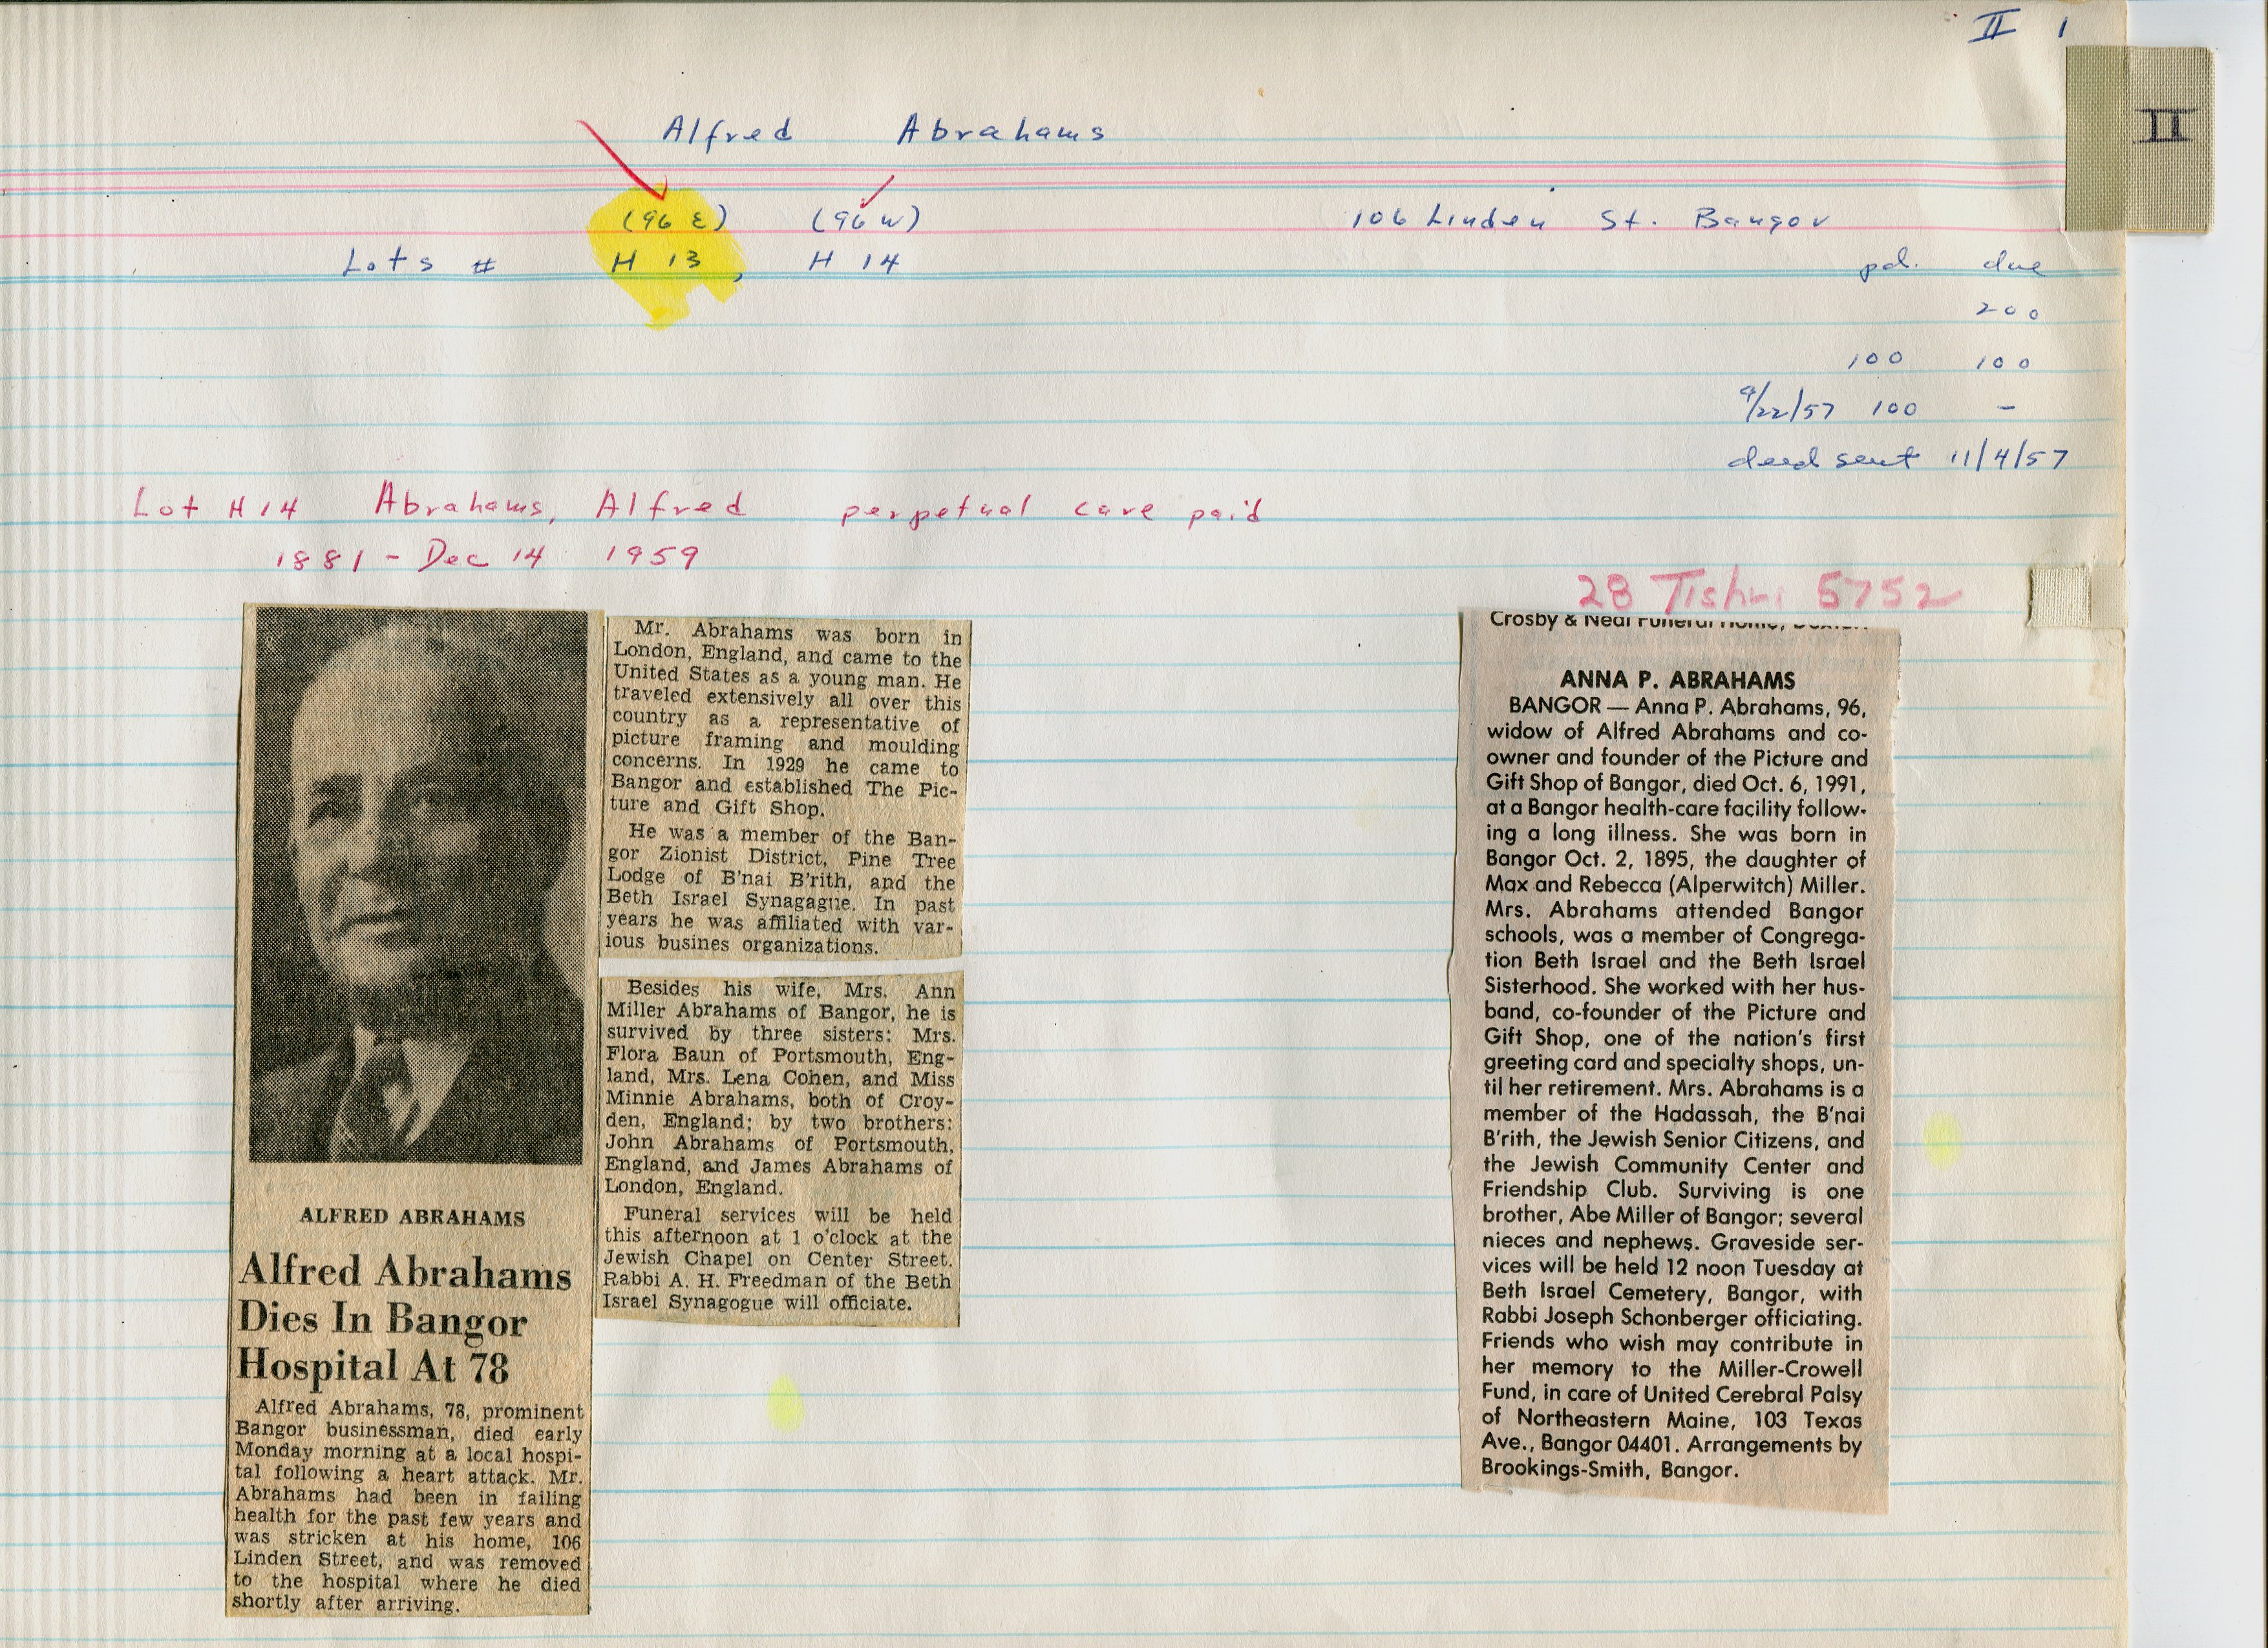 II 1
II
Alfred Abrahams
(96 E) (96 W) 106 Linden St. Bangor
Lots # H 13, H 14 pd. due
200
100 100
9/22/57 100 -
deed sent 11/4/57
Lot H14 Abrahams, Alfred perpetual care paid
1881 - Dec 14 1959
28 Tishri 5752
ALFRED ABRAHAMS
Alfred Abrahams
Dies In Bangor
Hospital At 78
Alfred Abrahams, 78, prominent
Bangor businessman, died early
Monday morning at a local hospi-
tal following a heart attack. Mr.
Abrahams had been in failing
health for the past few years and
was stricken at his home, 106
Linden Street, and was removed
to the hospital where he died
shortly after arriving.
Mr. Abrahams was born in
London, England, and came to the
United States as a young man. He
traveled extensively all over this
country as a representative of
picture framing and moulding
concerns. In 1929 he came to
Bangor and established The Pic-
ture and Gift Shop.
He was a member of the Ban-
gor Zionist District, Pine Tree
Lodge of B'nai B'rith, and the
Beth Israel Synagague. In past
years he was affiliated with var-
ious busines organizations.
Besides his wife, Mrs. Ann
Miller Abrahams of Bangor, he is
survived by three sisters: Mrs.
Flora Baun of Portsmouth, Eng-
land, Mrs. Lena Cohen, and Miss
Minnie Abrahams, both of Croy-
den, England; by two brothers:
John Abrahams of Portsmouth,
England, and James Abrahams of
London, England.
Funeral services will be held
this afternoon at 1 o'clock at the
Jewish Chapel on Center Street.
Rabbi A. H. Freedman of the Beth
Israel Synagogue will officiate.
Crosby & Neal Funeral Home,
ANNA P. ABRAHAMS
BANGOR — Anna P. Abrahams, 96,
widow of Alfred Abrahams and co-
owner and founder of the Picture and
Gift Shop of Bangor, died Oct. 6, 1991,
at a Bangor health-care facility follow-
ing a long illness. She was born in
Bangor Oct. 2, 1895, the daughter of
Max and Rebecca (Alperwitch) Miller.
Mrs. Abrahams attended Bangor
schools, was a member of Congrega-
tion Beth Israel and the Beth Israel
Sisterhood. She worked with her hus-
band, co-founder of the Picture and
Gift Shop, one of the nation's first
greeting card and specialty shops, un-
til her retirement. Mrs. Abrahams is a
member of the Hadassah, the B'nai
B'rith, the Jewish Senior Citizens, and
the Jewish Community Center and
Friendship Club. Surviving is one
brother, Abe Miller of Bangor; several
nieces and nephews. Graveside ser-
vices will be held 12 noon Tuesday at
Beth Israel Cemetery, Bangor, with
Rabbi Joseph Schonberger officiating.
Friends who wish may contribute in
her memory to the Miller-Crowell
Fund, in care of United Cerebral Palsy
of Northeastern Maine, 103 Texas
Ave., Bangor 04401. Arrangements by
Brookings-Smith, Bangor.